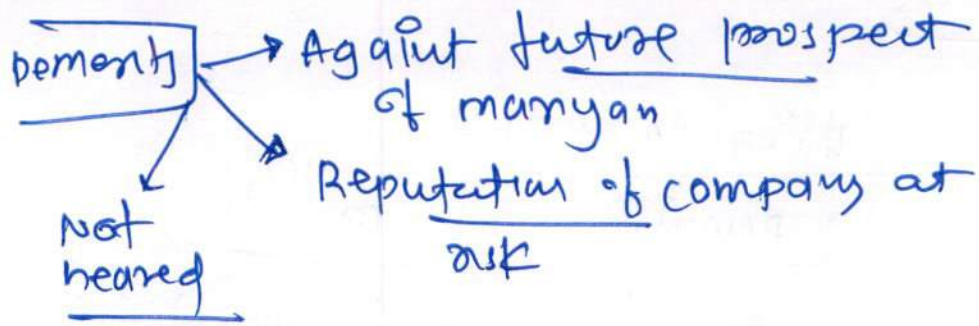 Demerits
Against future prospect
of maryan
Reputation of company at
risk
Not
heared